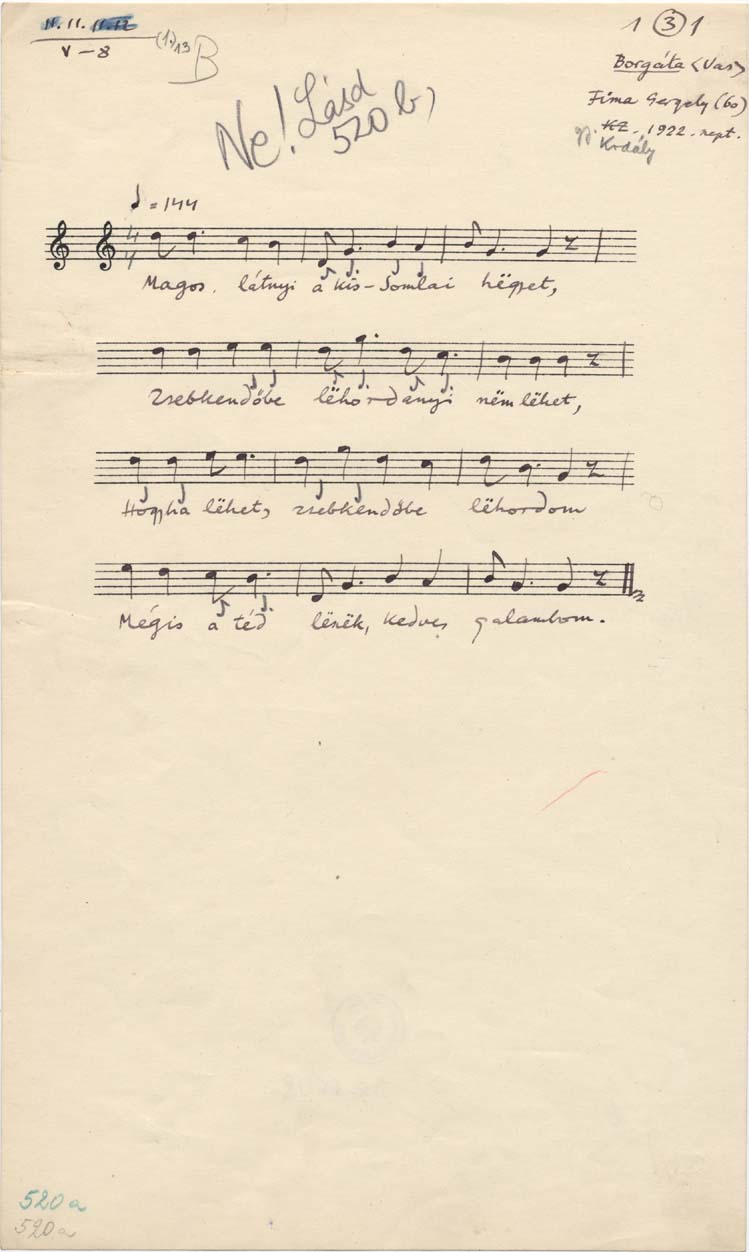 11. 11. 11-12
V – 8
(1.) 13
B
1 3 1
Borgáta <Vas>
Fima Gergely (60)
KZ., 1922. szept.
Kodály
Ne! Lásd
520 b)
= 144
4
4
Magos látnyi a kis-Somlai hëgyet,
Zsebkendőbe lëhordanyi nëm lëhet,
Hogyha lëhet, zsebkendőbe lëhordom
Mégis a téd lëszëk, kedves galambom.
520 a
520 a